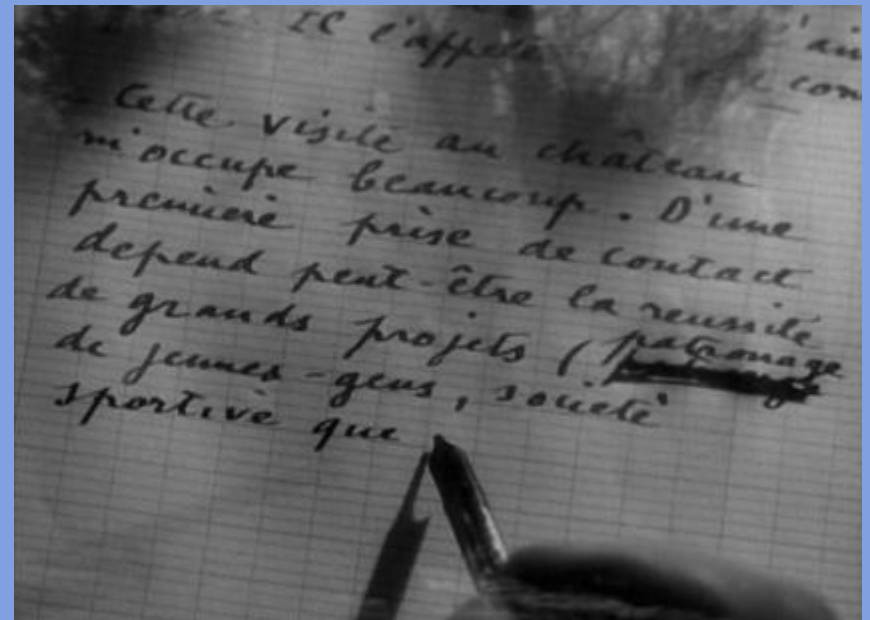 Il l'appelle
con
Cette visite au château
m'occupe beaucoup. D'une
première prise de contact
depend peut-être la reussite
de grands projets ( patronage
de jeunes-gens, societé
sportive que